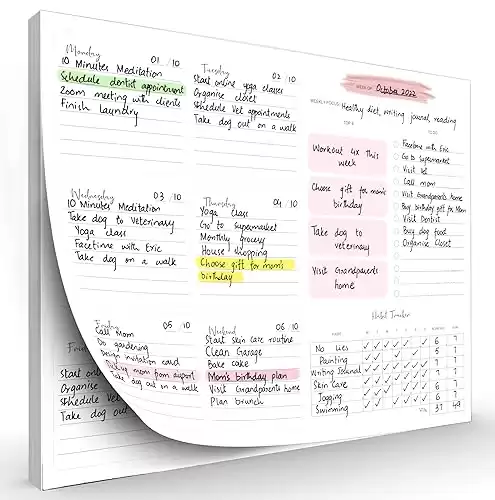 Monday 01 /10
10 Minutes Meditation
Schedule dentist appointment
Zoom meeting with clients
Finish laundry
Tuesday 02 /10
Start online yoga classes
Organise closet
Schedule Vet appointments
Take dog out on a walk
WEEK OF: October 2022
WEEKLY FOCUS: Healthy diet, writing journal, reading
TOP 4
Workout 4x this
week
Choose gift for mom's
birthday
Take dog to
veterinary
Visit Grandparents
home
TO DO
Facetime with Eric
Go to supermarket
Visit Vet
Call mom
Visit Grandparents home
Buy birthday gift for Mom
Visit Dentist
Buy dog food
Organise Closet
Wednesday 03 /10
10 Minutes Meditation
Take dog to Veterinary
Yoga class
Facetime with Eric
Take dog on a walk
Thursday 04 /10
Yoga class
Go to supermarket
Monthly grocery
House shopping
Choose gift for mom's
birthday
Friday 05 /10
Call Mom
Do gardening
Design invitation card
Pick up mom from airport
Take dog out on a walk
Weekend 06 /10
Start skin care routine
Clean Garage
Bake cake
Mom's birthday plan
Visit Grandparents home
Plan brunch
Habit Tracker
No lies 6 7
Painting 5 7
Writing Journal 7 7
Skin care 6 7
Jogging 6 7
Swimming
37 49
Fri
Start onl
Organise
Schedule Vet
Take dog out